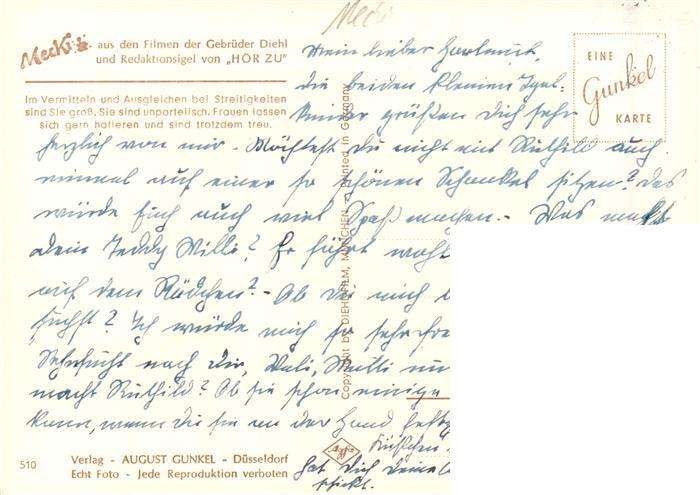 Mecki
Mecki aus den Filmen der Gebrüder Diehl
und Redaktionsigel von „HÖR ZU"
Im Vermitteln und Ausgleichen bei Streitigkeiten
sind Sie groß, Sie sind unparteiisch. Frauen lassen
sich gern hofieren und sind trotzdem treu.
EINE
Gunkel
KARTE
Mein lieber Hartmut,
die beiden kleinen Igel-
kinder grüßen Dich sehr
herzlich von mir. Möchtest Du nicht mit Ruthild auch
einmal auf einer so schönen Schaukel sitzen? Das
würde Euch auch viel Spaß machen. Was macht
dein Teddy Willi? Er fährt wohl
auf dem Rädchen? Ob Du mich
suchst? Ich würde mich so sehr
Sehnsucht nach Dir, Vati, Mutti
macht Ruthild? Ob sie schon einige
kann, wenn du sie an der Hand
Küßchen
hat Dich Deine
Copyright by DIEHL-FILM, MÜNCHEN - Printed in Germany
Agfa
510
Verlag - AUGUST GUNKEL - Düsseldorf
Echt Foto - Jede Reproduktion verboten